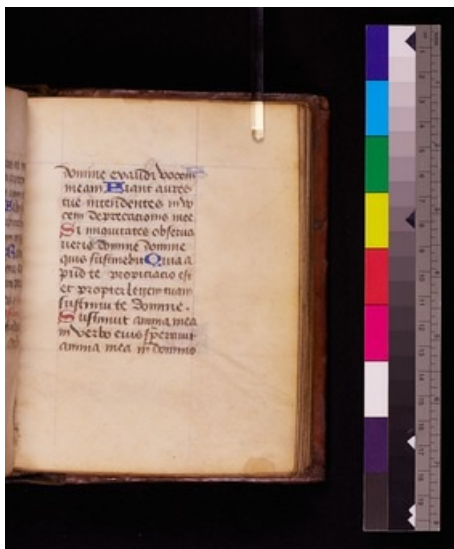 Domine exaudi vocem
meam Fiant aures
tue intendentes in vo
cem deprecationis mee
Si iniquitates observa
veris domine domine
quis sustinebit Quia a
pud te propiciatio est
et propter legem tuam
sustinui te domine.
Sustinuit anima mea
in verbo eius speravit
anima mea in domino